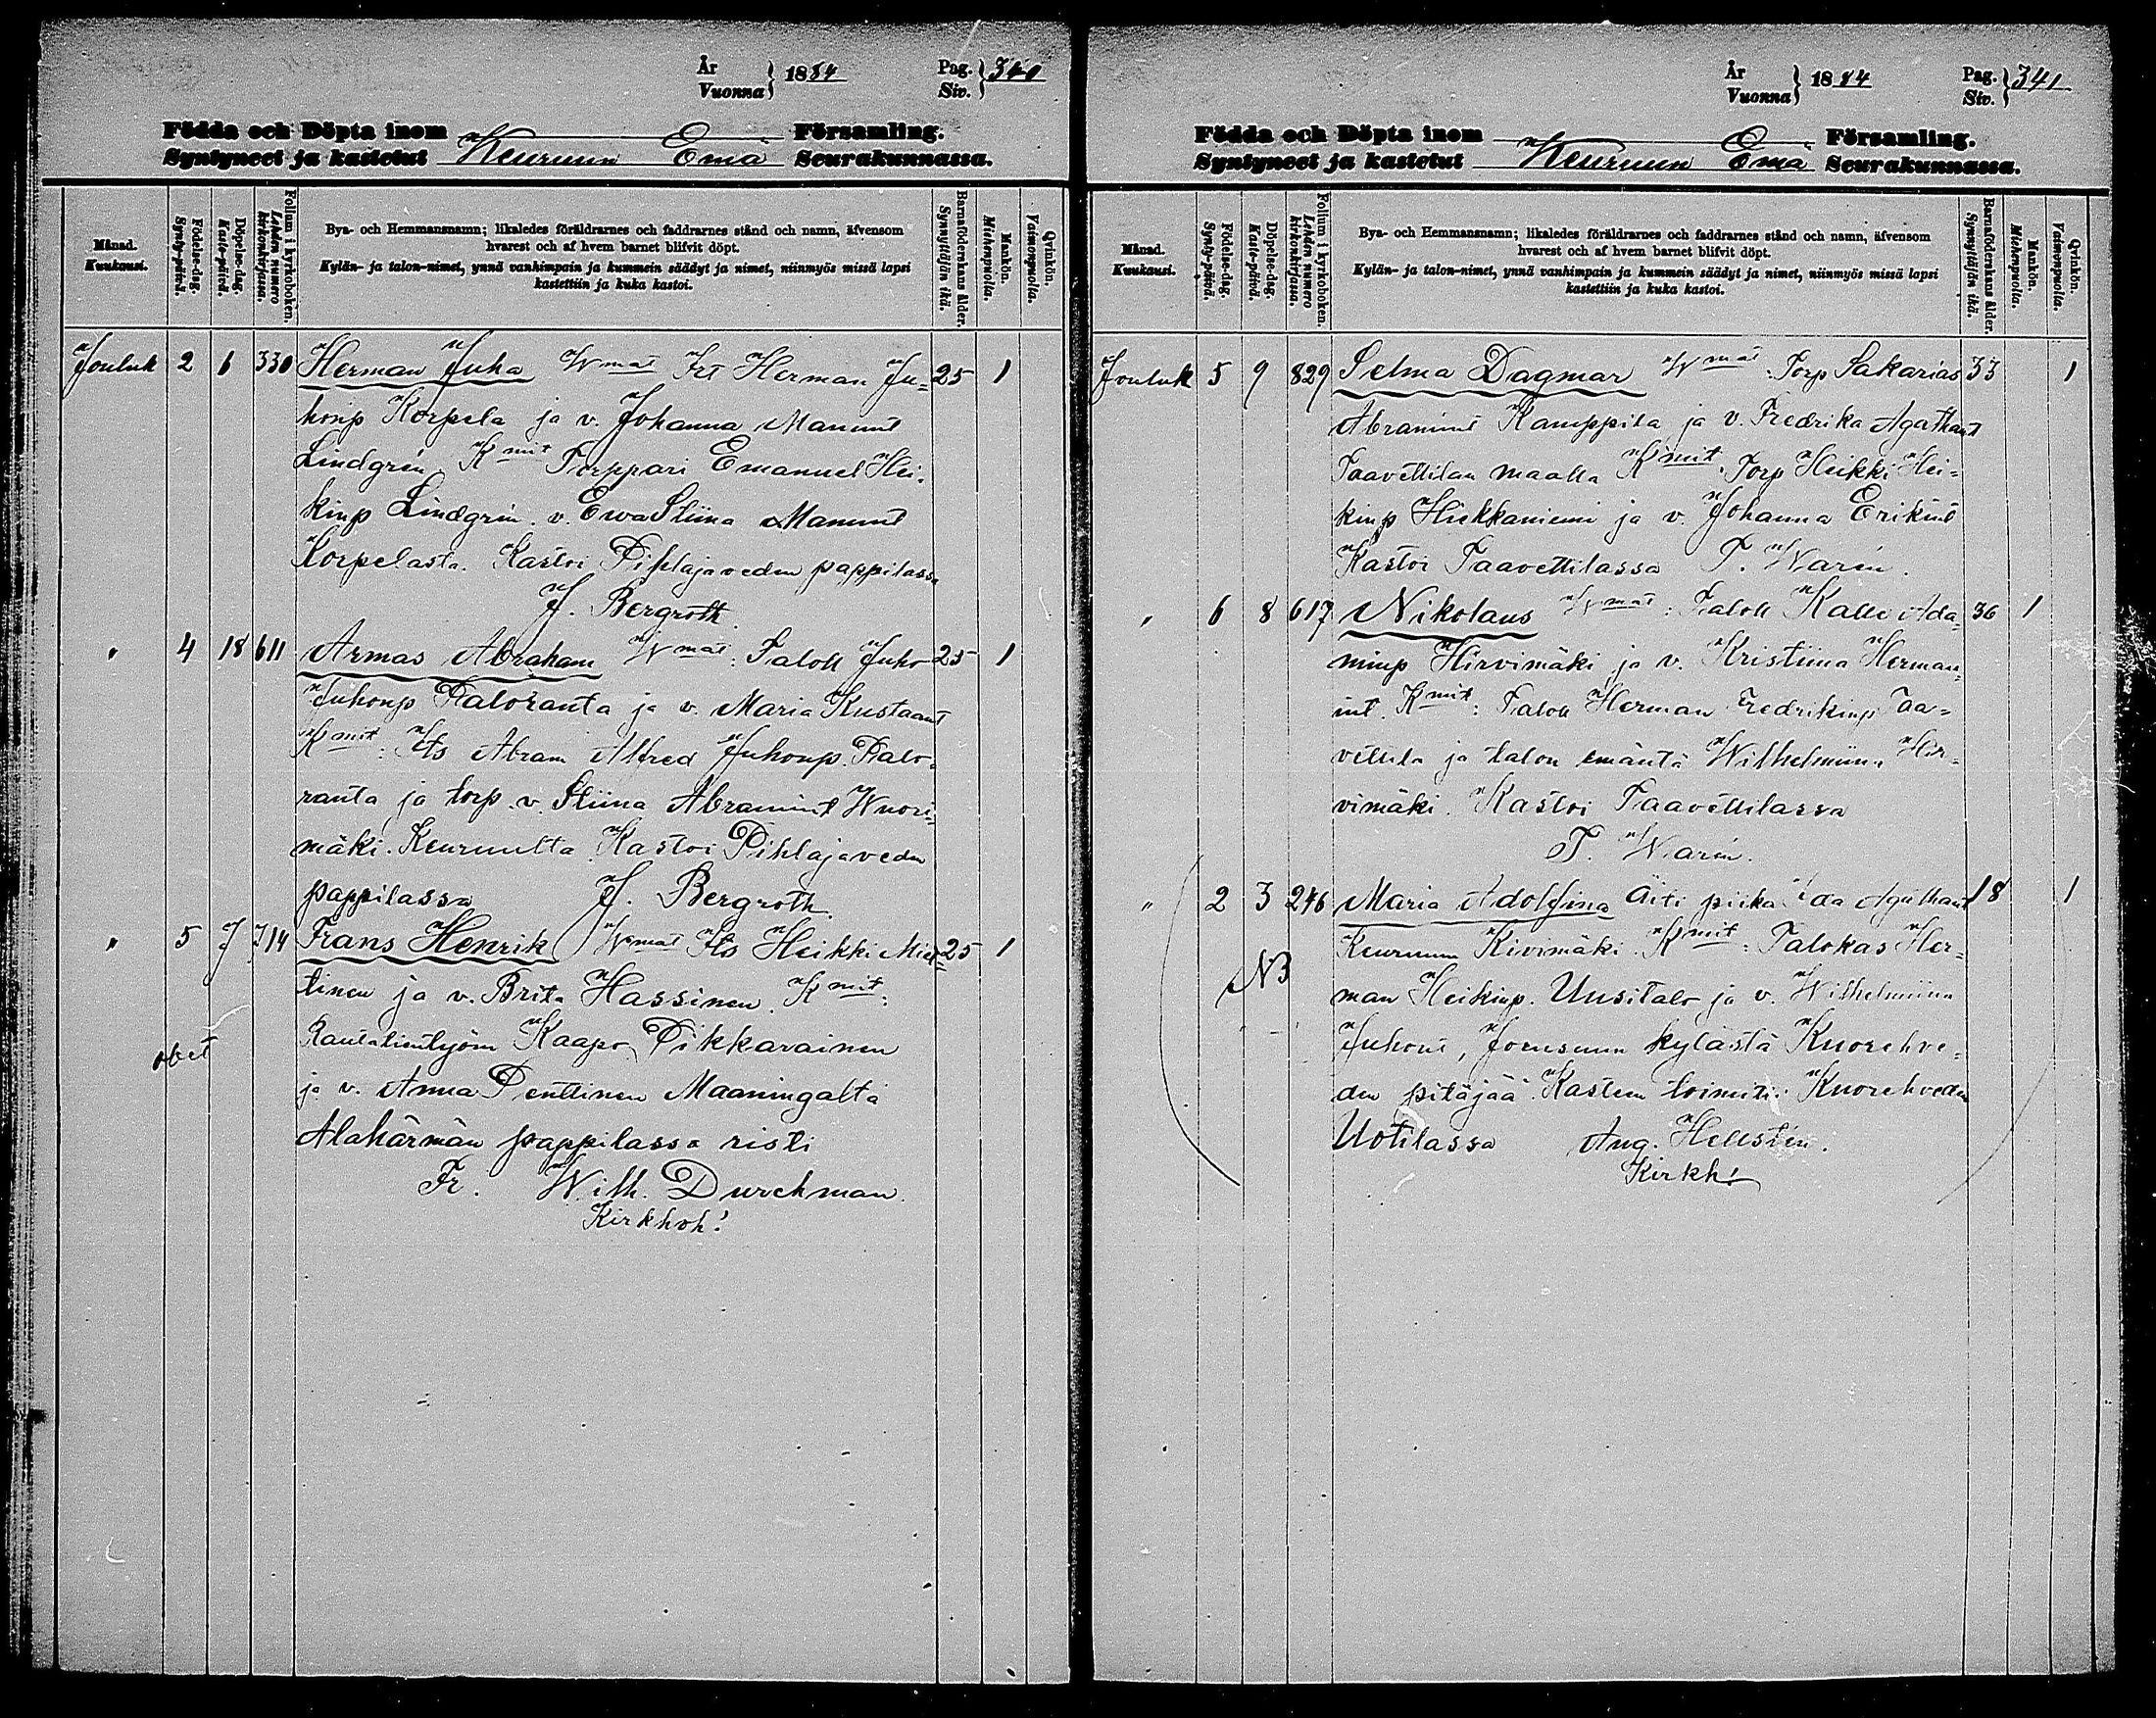 År
Vuonna } 1884 Pag.
Siv. } 340
Födda och Döpta inom Församling.
Syntyneet ja kastetut Keuruun Emä Seurakunnassa.
Månad.
Kuukausi.
Födelse-dag.
Synty-päivä.
Döpelse-dag.
Kaste-päivä.
Folium i kyrkoboken.
Lehden numero
kirkonkirjassa.
Bya- och Hemmansnamn; likaledes föräldrarnes och faddrarnes stånd och namn, äfvensom
hvarest och af hvem barnet blifvit döpt.
Kylän- ja talon-nimet, ynnä vanhimpain ja kummein säädyt ja nimet, niinmyös missä lapsi
kastettiin ja kuka kastoi.
Barnaföderskans ålder.
Synnyttäjän ikä.
Mankön.
Miehenpuolia.
Qvinkön.
Vaimonpuolia.
Jouluk 2 6 330 Herman Juha Wmat Herman Ju= 25 1
honp Korpela ja v. Johanna Manunt
Lindgrén. Kmit Torppari Emanuel Hei=
kinp Lindgrén. v. Ewa Stiina Manunt
Korpelasta. Kastoi Pihlajaveden pappilassa
J. Bergroth.
" 4 18 611 Armas Abraham Wmat: Taloll Juho 25 1
Juhonp Paloranta ja v. Maria Kustaant
Kmit: Its Abram Alfred Juhonp. Palo=
ranta ja torp. v. Stiina Abramint Wuori=
mäki. Keuruulta Kastoi Pihlajaveden
pappilassa J. Bergroth.
" 5 7 714 Frans Henrik Wmat Its Heikki Miet= 25 1
tinen ja v. Brita Hassinen. Kmit:
Rautatientyöm Kaapo Pikkarainen
obet
ja v. Anna Penttinen Maaningalta
Alahärmän pappilassa risti
Fr. Wilh. Durchman.
Kirkhoh!
År
Vuonna } 1884 Pag.
Siv. } 341
Födda och Döpta inom Församling.
Syntyneet ja kastetut Keuruun Emä Seurakunnassa.
Månad.
Kuukausi.
Födelse-dag.
Synty-päivä.
Döpelse-dag.
Kaste-päivä.
Folium i kyrkoboken.
Lehden numero
kirkonkirjassa.
Bya- och Hemmansnamn; likaledes föräldrarnes och faddrarnes stånd och namn, äfvensom
hvarest och af hvem barnet blifvit döpt.
Kylän- ja talon-nimet, ynnä vanhimpain ja kummein säädyt ja nimet, niinmyös missä lapsi
kastettiin ja kuka kastoi.
Barnaföderskans ålder.
Synnyttäjän ikä.
Mankön.
Miehenpuolia.
Qvinkön.
Vaimonpuolia.
Jouluk 5 9 829 Selma Dagmar Wmat: Torp Sakarias 33 1
Abramint Kamppila ja v. Fredrika Agathant
Taavettilan maalla Kmit. Torp Heikki Hei=
kinp Hiekkaniemi ja v. Johanna Erikint
Kastoi Taavettilassa T. Warén.
" 6 8 617 Nikolaus Wmat: Taloll Kalle Ada= 36 1
minp Hirvimäki ja v. Kristiina Herman=
int. Kmit: Taloll Herman Fredrikinp Taa=
vettila ja talon emäntä Wilhelmiina Hir=
vimäki. Kastoi Taavettilassa
T. Warén.
" 2 3 246 Maria Adolfina Äiti piika Ida Agathant 18 1
Keuruun Kivimäki. Kmit: Talokas Her=
NB
man Heikinp. Uusitalo ja v. Wilhelmiina
Juhont, Jorusuun kylästä Kuorehve=
den pitäjää. Kasteen toimitti Kuorehveden
Uotilassa Aug. Hellstén.
Kirkh!